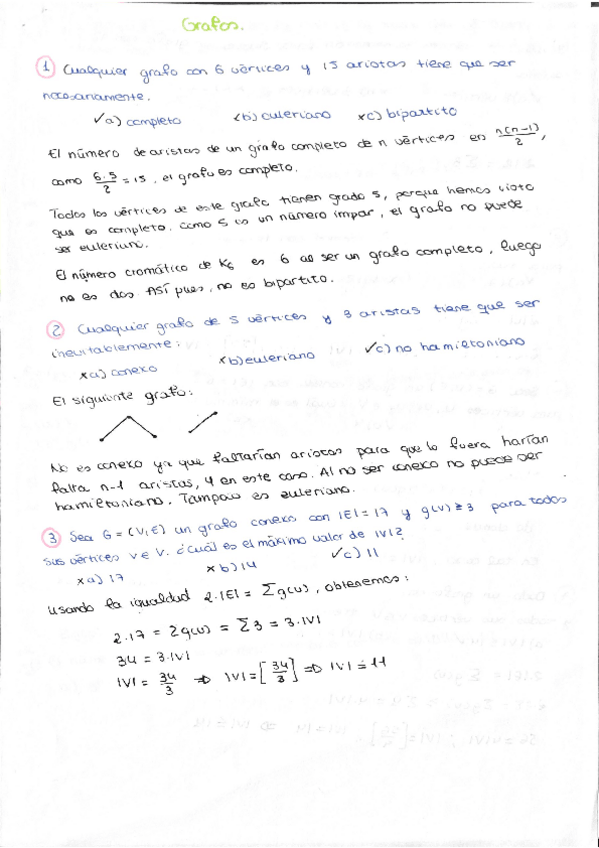 Grafos.
1 Cualquier grafo con 6 vértices y 15 aristas tiene que ser
necesariamente.
✓a) completo xb) euleriano xc) bipartito
El número de aristas de un grafo completo de n vértices es n(n-1)/2,
como 6·5/2 = 15, el grafo es completo.
Todos los vértices de este grafo tienen grado 5, porque hemos visto
que es completo. Como 5 es un número impar, el grafo no puede
ser euleriano.
El número cromático de K6 es 6 al ser un grafo completo, luego
no es dos. Así pues, no es bipartito.
2 Cualquier grafo de 5 vértices y 3 aristas tiene que ser
inevitablemente:
xa) conexo xb) euleriano ✓c) no hamiltoniano
El siguiente grafo:
No es conexo ya que faltarían aristas para que lo fuera harían
falta n-1 aristas, 4 en este caso. Al no ser conexo no puede ser
hamiltoniano. Tampoco es euleriano.
3 Sea G = (V,E) un grafo conexo con |E| = 17 y g(v) ≥ 3 para todos
sus vértices v ∈ V. ¿Cuál es el máximo valor de |V|?
xa) 17 xb) 14 ✓c) 11
Usando la igualdad 2·|E| = Σg(v), obtenemos:
2·17 = Σg(v) = Σ3 = 3·|V|
34 = 3·|V|
|V| = 34/3 ⇒ |V| = [34/3] ⇒ |V| = 11